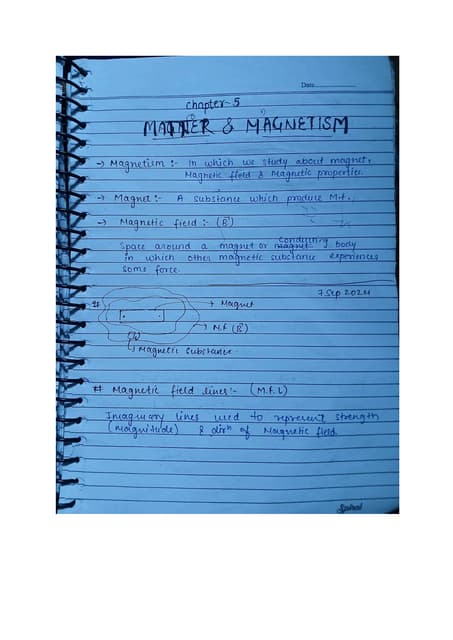 Date
Chapter-5
MATTER & MAGNETISM
→ Magnetism :- In which we study about magnet,
Magnetic field & Magnetic properties.
→ Magnet :- A substance which produce M.f.
→ Magnetic field :- (B⃗)
conducting
Space around a magnet or body
in which other magnetic substance experiences
some force.
7 Sep 2024
# → Magnet
→ M.f (B⃗)
→ Magnetic Substance
# Magnetic field lines :- (M.F.L)
Imaginary lines used to represent strength
(Magnitude) & dirn of Magnetic field.
Spiral